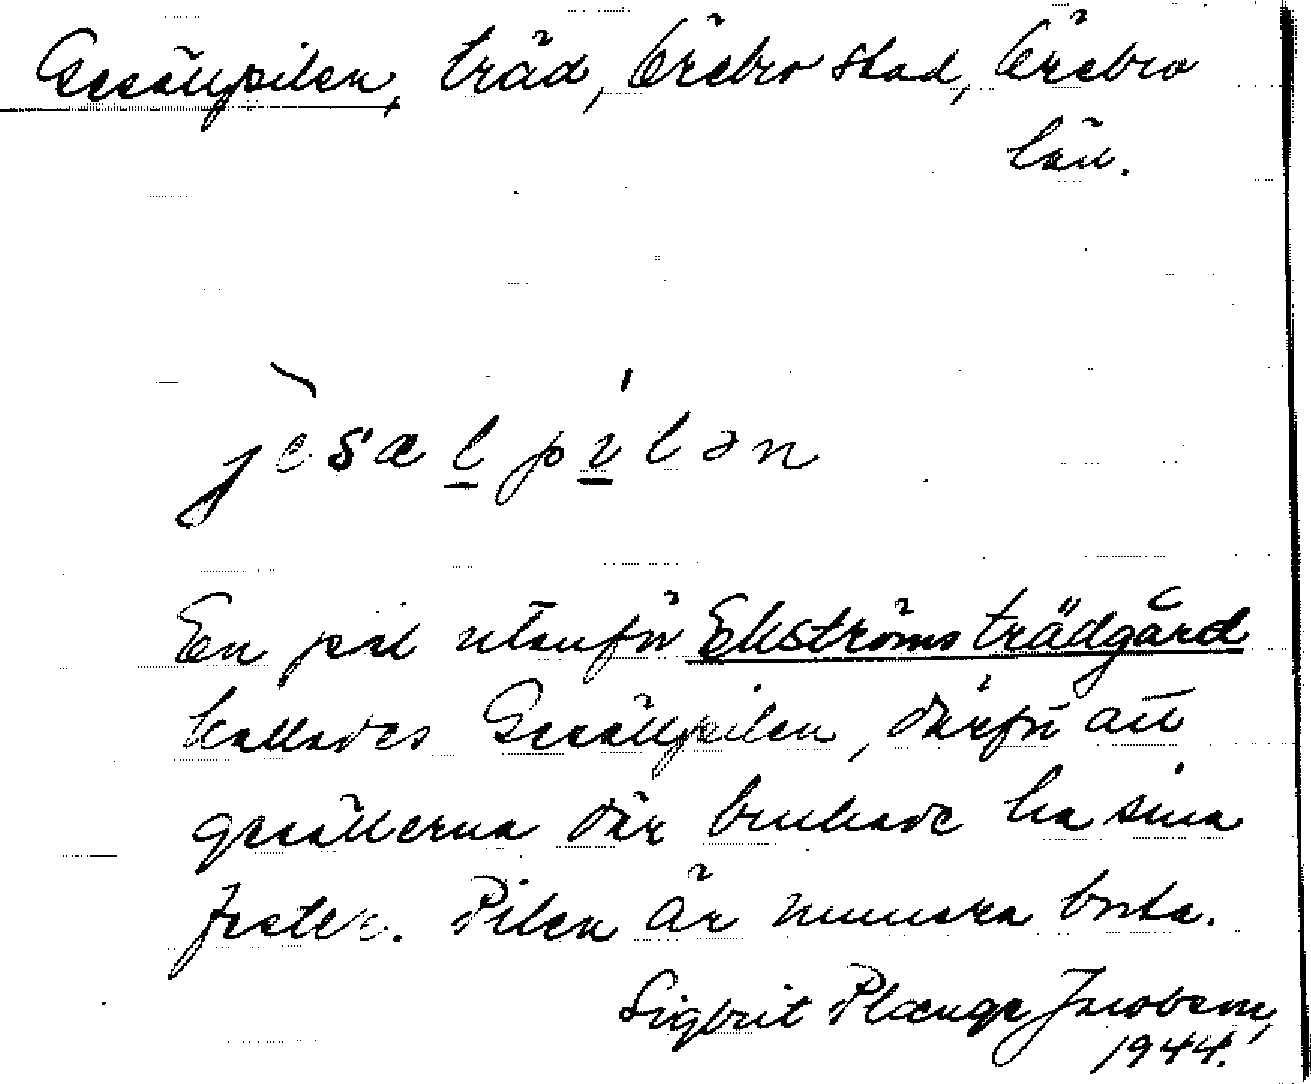 Gesällpilen, träd, Örebro stad, Örebro
län.
jèsæl̲pí̲lən
En pil utanför Ekströms trädgård
kallades Gesällpilen, därför att
gesällerna där brukade ha sina
fester. Pilen är numera borta.
Sigbrit Plænge Jacobson,
1944.